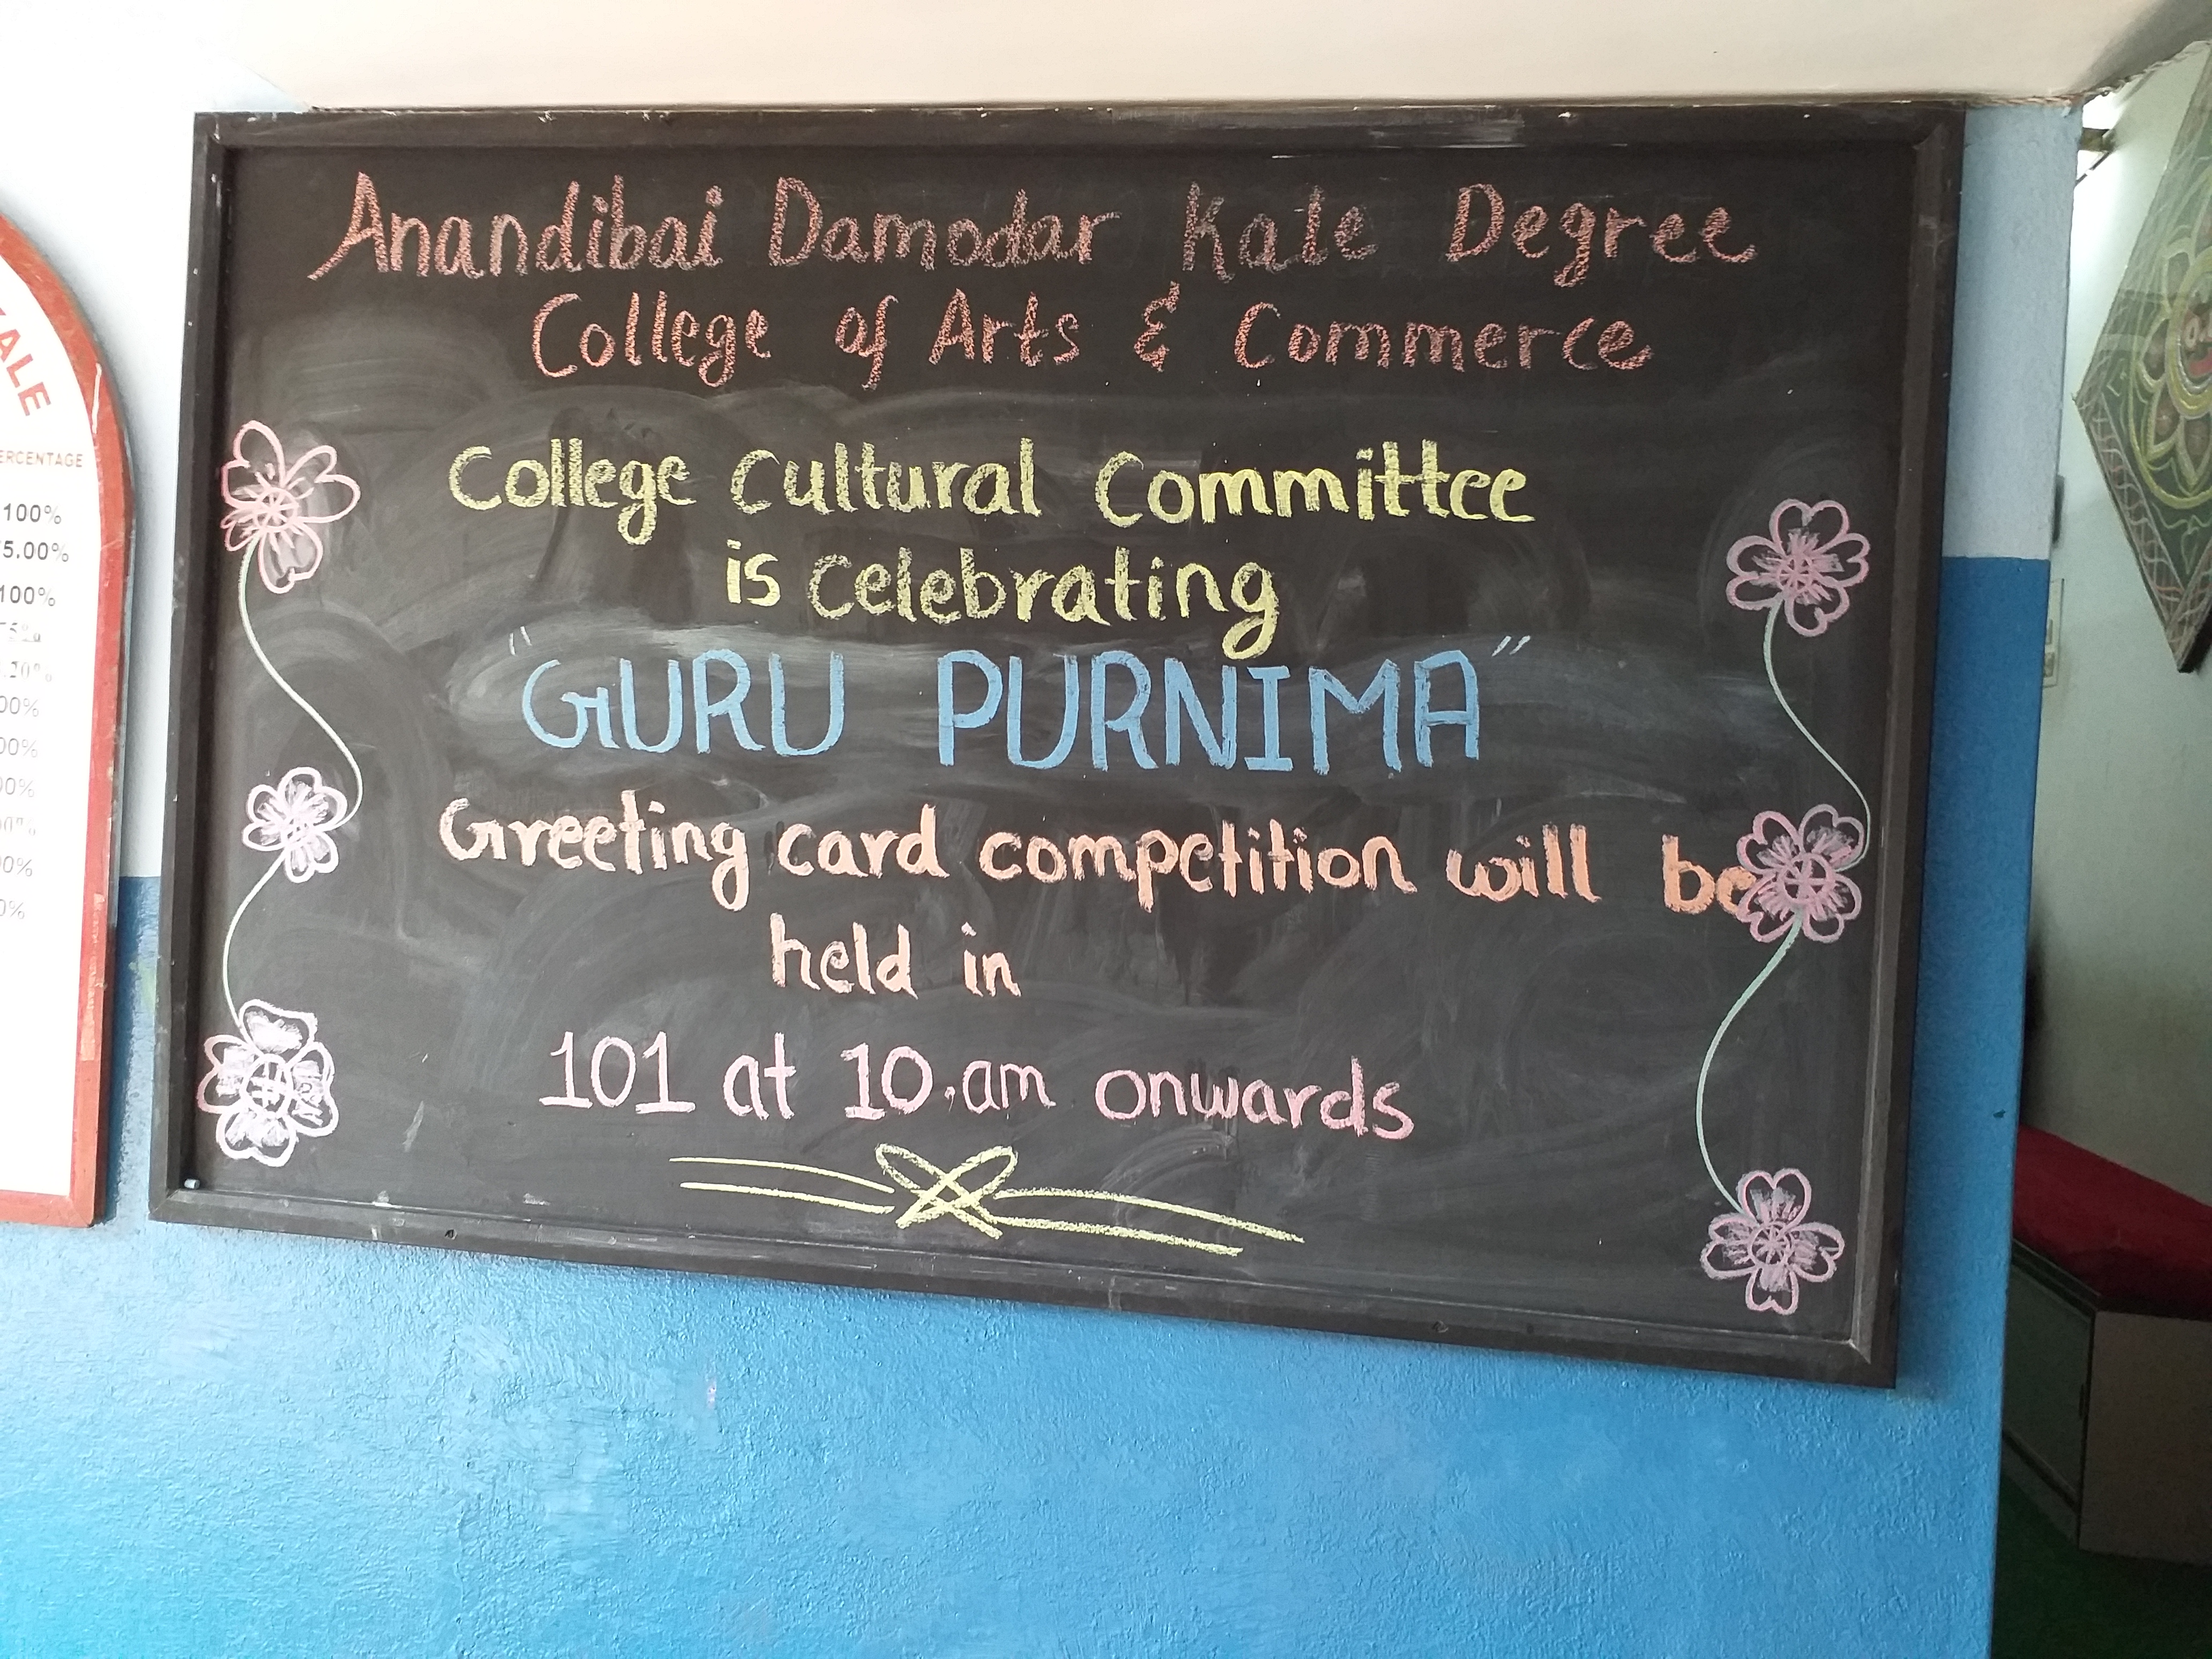 Anandibai Damodar Kale Degree
College of Arts & Commerce
College Cultural Committee
is celebrating
"GURU PURNIMA"
Greeting card competition will be
held in
101 at 10.am onwards
ALE
ERCENTAGE
100%
5.00%
100%
00%
00%
00%
00%
0%